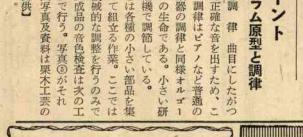 ント
ラム原型と調律
調 律 曲目にしたがつ
正確な音を出すため、こ
調律はピアノなど普通の
器の調律と同様オルゴー
の生命である。小さい研
機で調節している。
は各種の小さい部品を集
て組立る作業。ここでは
械的な調整を行うのみで
成品の音色検査は次の工
で行う。写真⑧がそれ
写真及資料は栃木工芸の
供】